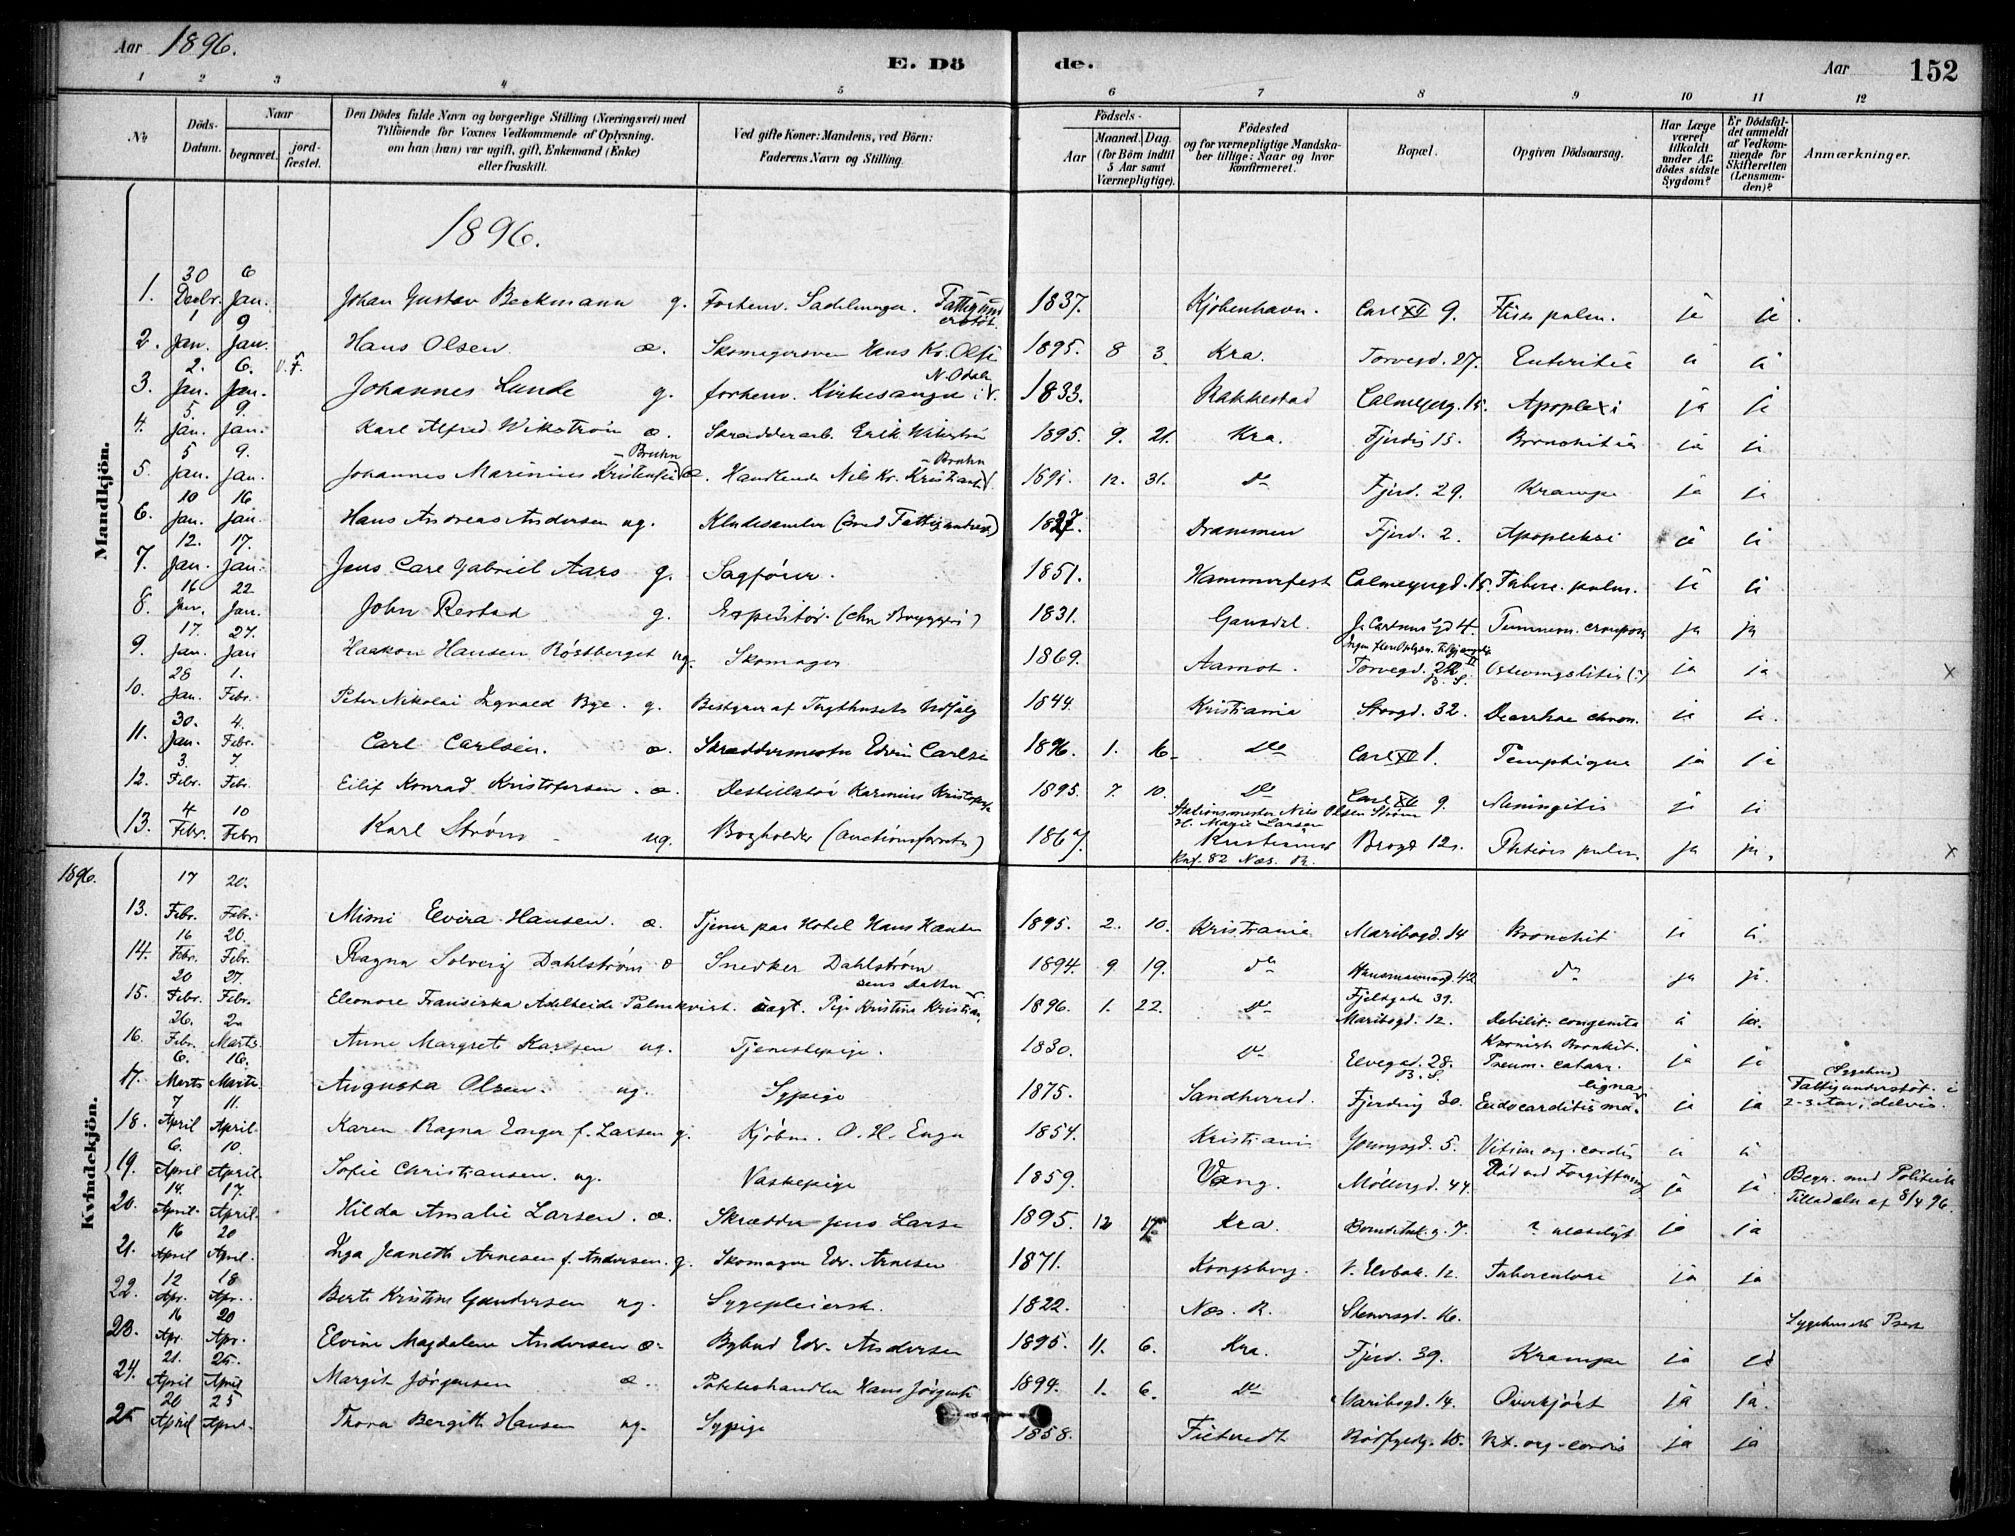 Aar 1896.
E. Dö de.
Aar 152
1 2 3 4 5 6 7 8 9 10 11 12
No
Döds-Datum.
Naar
begravet.
jord-fæstet.
Den Dödes fulde Navn og borgerlige Stilling (Næringsvei) med
Tilföiende for Voxnes Vedkommende af Oplysning,
om han (hun) var ugift, gift, Enkemand (Enke)
eller fraskilt.
Ved gifte Koner: Mandens, ved Börn:
Faderens Navn og Stilling.
Födsels-
Aar
Maaned. Dag.
(for Börn indtil
5 Aar samt
Værnepligtige).
Födested
og for værnepligtige Mandska-
ber tillige: Naar og hvor
konfirmeret.
Bopæl.
Opgiven Dödsaarsag.
Har Læge
været
tilkaldt
under Af-
dödes sidste
Sygdom?
Er Dödsfal-
det anmeldt
af Vedkom-
mende for
Skifteretten
(Lensman-
den)?
Anmærkninger.
Mandkjön.
1896.
1. 30 Decbr. 6 Jan. Johan Gustav Beckmann g. Forhenv. Sadelmager. 1837. Kjøbenhavn. Carl XII 9. ja ja
2. 1 Jan. 9 Jan. Hans Olsen æ. Skomagersven Hans Kr. Olse 1895. 8 3. Kra. Torvegd. 27. Enteritis
3. 2. Jan. 6. Jan. Johannes Lunde g. forhenv. Kirkesanger i N. Odal 1833. Rakkestad Calmeyerg. 15. Apoplexi ja ja
4. 5. Jan. 9. Jan. Karl Alfred Wikström æ. Skrædderarb. Erik Wikström 1895. 9. 21. Kra. Fjerdg 15. Bronchitis ja ja
5. 5 Jan. 9. Jan. Johannes Marinius Kristensen Bruhn æ. Handlende Nils Kr. Kristians Bruhn 12. 31. Do Fjerd. 29. Krampe ja ja
6. 10 Jan. 16 Jan. Hans Andreas Andersen ug. Kludesamler 1827. Drammen Fjerd. 2. Apopleksi ja ja
7. 12. Jan. 17. Jan. Jens Carl Gabriel Aars g. Sagfører. 1851. Hammerfest Calmeyergd. 15. Tuberc. pulm. ja ja
8. 16 Jan. 22 Jan. John Restad g. Expeditør. 1831. Gausdal. ja ja
9. 17. Jan. 27. Jan Haakon Hansen Röstberget ug. Skomager 1869. Aamot. Torvegd. 22 B. S. ja ja x
10. 28 Jan. 1. Febr. Peter Nikolai Ingvald Bye. g. Bestyrer af Tugthusets Udsalg 1844. Kristiania Storgd. 32. Diarrhoe chron. ja ja.
11. 30. Jan. 4. Febr. Carl Carlsen. æ. Skræddermester Edvin Carlse 1896. 1. 16 Do Carl XII 1. Pemphigus ja ja
12. 3. Febr. 7. Febr. Eilif Konrad Kristofersen. æ. Destillatør Karenius Kristofersen 1895. 7. 10. Do Carl XII 9. Meningitis ja ja
Stationsmester Nils Olsen Strøm
H. Marie Larsen
13. 4 Febr. 10 Febr Karl Strøm ug. Bogholder 1867. Kristiania Brogd 12. Phthisis pulm. ja ja. x
Knf. 82 Næs. R.
1896.
Kvindekjön.
13. 17 Febr. 20. Febr. Mimi Elvira Hansen. æ. Tjener paa Hotel Hans Hansen 1895. 2. 10. Kristiania Maribogd. 14 Bronchit ja ja
14. 16 Febr. 20. Febr. Ragna Solveig Dahlström æ Snedker Dahlström 1894. 9 19. do Hausmannsgd. 42 do ja ja.
15. 20 Febr. 27. Febr. Eleonore Fransiska Adelheide Palmkvist. uægt. Pige Kristine Kristiansens Datter 1896. 1. 22. Do Fjeldgade 39. Maribogd. 12. Debilit. congenita
16. 26. Febr. 2 Marts. Anne Margrete Karlsen ug. Tjenestepige. 1830. Do Elvegd. 28. B. S. Kronisk Bronkit. Pneum. catarr. ja ja
17. 6. Marts 16. Marts Augusta Olsen. ug. Sypige 1875. Sandherred. Fjerding 30. Endocarditis maligna ja ja Fattigunderstøt. i 2-3 Aar, delvis.
18. 7 April 11. April. Karen Ragna Enger f. Larsen g. Kjøbm. O. H. Enger 1854. Kristiania Youngsgd. 5. Vitium org. cordis
19. 6. April 10. April. Sofie Christiansen. ug. Vaskepige 1859. Vang. Møllergd. 44. Død ved Forgiftning ja ja Begr. med Politiets Tilladelse af 8/4 96.
20. 14. April. 17. April. Hilda Amalie Larsen. æ. Skrædder Jens Larse 1895. 12 17 Kra. ? ulæseligt ja ja
21. 16 April 20 April. Inga Jeanette Arnesen f. Andersen. g. Skomager Edv. Arnesen 1871. Kongsberg. V. Elvbak. 12. Tuberculose ja ja
22. 12 Apr. 18 Apr. Berte Kristine Gundersen ug. Sygepleiersk. 1822. Næs. R. Stenersgd. 16. Sygehusets Prest
23. 16 Apr. 20 Apr. Elvine Magdalene Andersen æ. Bybud Edv. Andersen 1895. 11. 6. Kra. Fjerd. 39. Krampe ja ja
24. 21. April 25. April Margit Jørgensen æ. Hans Jørgense 1894. 1. 6. Do Maribogd. 14. Overkjørt ja ja.
25 20 April 25 April. Thora Bergitte Hansen ug. Sypige 1858. Vit. org. cordis ja ja